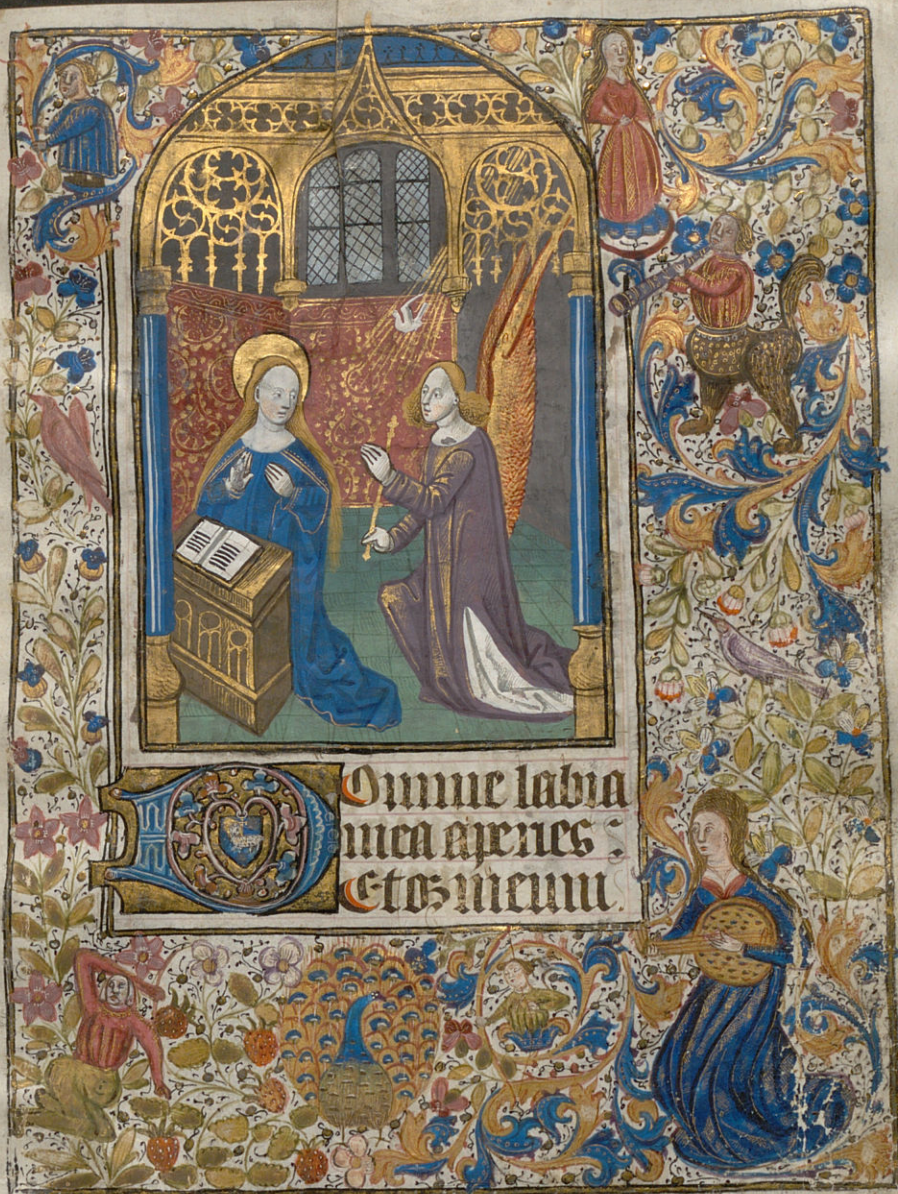 Domine labia
mea aperies :
Et os meum.